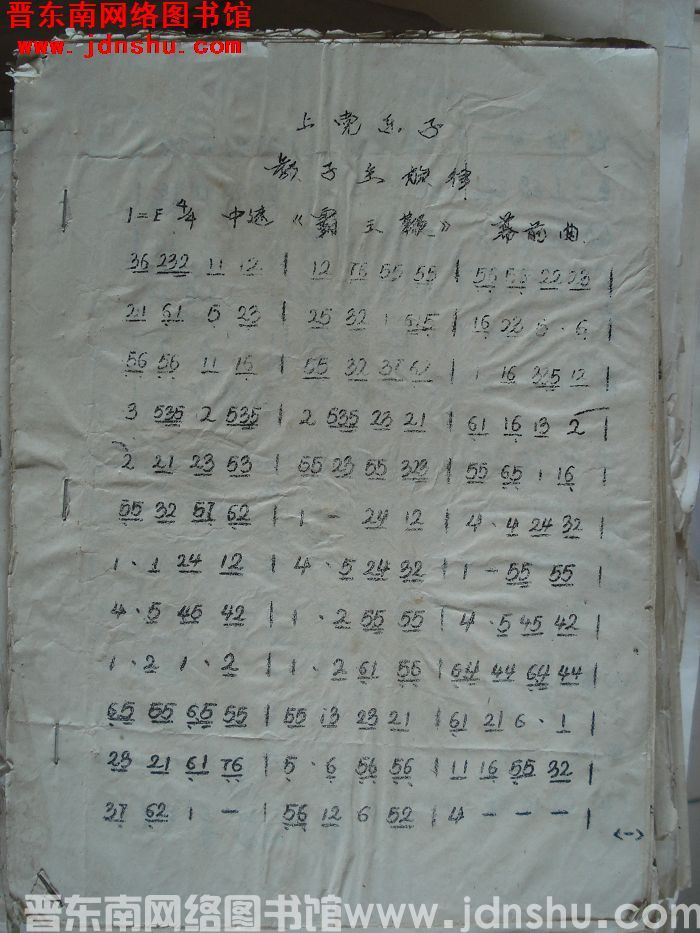 晋东南网络图书馆
www.jdnshu.com
上党乐子
敬子主旋律
1=E 4/4 中速 《霸王鞭》 幕前曲
36 232 11 12 | 12 76 55 55 | 55 53 22 23 |
21 61 5 23 | 25 32 1 615 | 16 23 5 · 6 |
56 56 11 15 | 55 32 37 61 | 1 16 325 12 |
3 535 2 535 | 2 535 23 21 | 61 16 13 2 |
2 21 23 53 | 55 23 55 323 | 55 65 1 16 |
55 32 57 62 | 1 - 24 12 | 4 · 4 24 32 |
1 · 1 24 12 | 4 · 5 24 32 | 1 - 55 55 |
4 · 5 45 42 | 1 · 2 55 55 | 4 · 5 45 42 |
1 · 2 1 · 2 | 1 · 2 61 55 | 64 44 64 44 |
65 55 65 55 | 55 13 23 21 | 61 21 6 · 1 |
23 21 61 76 | 5 · 6 56 56 | 11 16 55 32 |
37 62 1 - | 56 12 6 52 | 4 - - - |
<一>
晋东南网络图书馆www.jdnshu.com